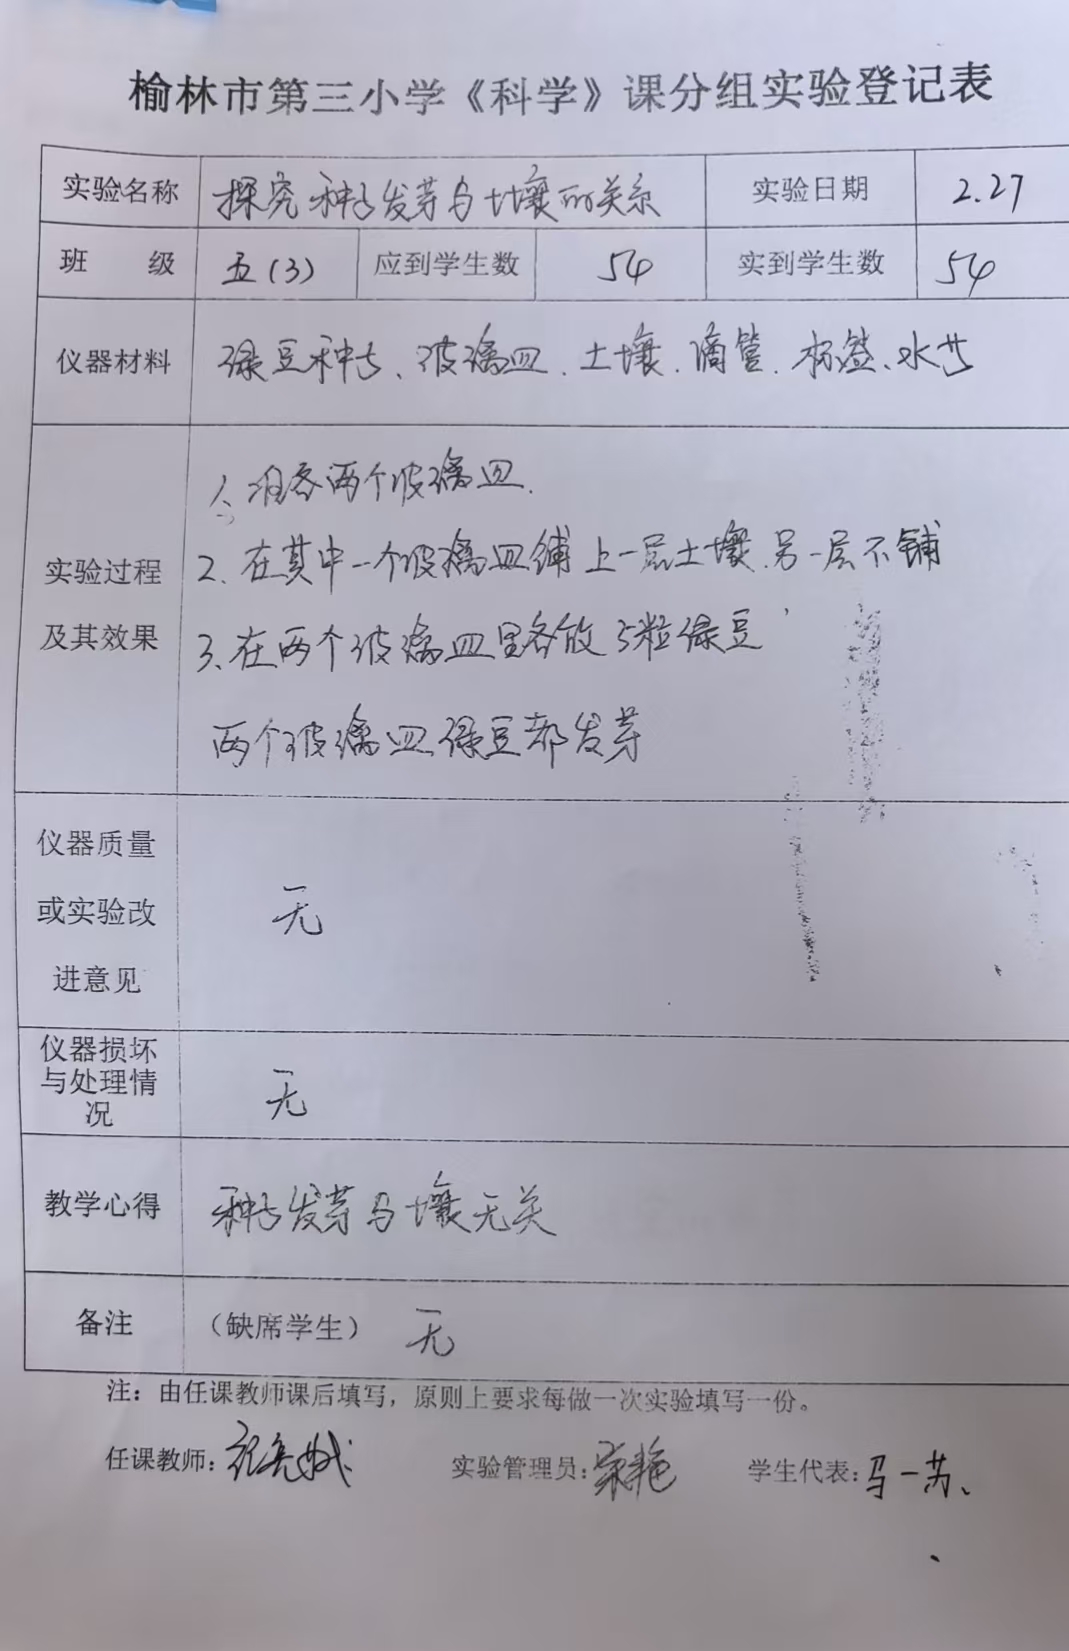 榆林市第三小学《科学》课分组实验登记表
实验名称 探究种子发芽与土壤的关系 实验日期 2.27
班 级 五(3) 应到学生数 54 实到学生数 54
仪器材料 绿豆种子、玻璃皿、土壤、滴管、标签、水等
实验过程
及其效果
1、准备两个玻璃皿.
2、在其中一个玻璃皿铺上一层土壤,另一层不铺
3、在两个玻璃皿里各放5粒绿豆
两个玻璃皿绿豆都发芽
仪器质量
或实验改
进意见
无
仪器损坏
与处理情
况
无
教学心得 种子发芽与土壤无关
备注 (缺席学生) 无
注:由任课教师课后填写,原则上要求每做一次实验填写一份。
任课教师: 实验管理员: 学生代表:马一苏